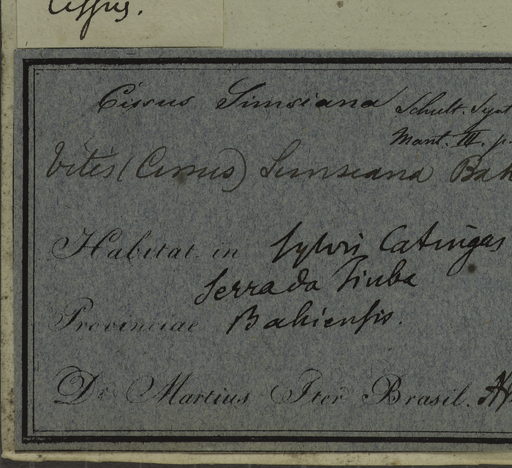 Cissus.
Cissus Simsiana Schult. Syst
Mant. III. p.
Vitis (Cissus) Simsiana Bak
Habitat in sylvis Catingas
Serra da Tiuba
Provinciae Bahiensis.
Dr. Martius Iter Brasil.